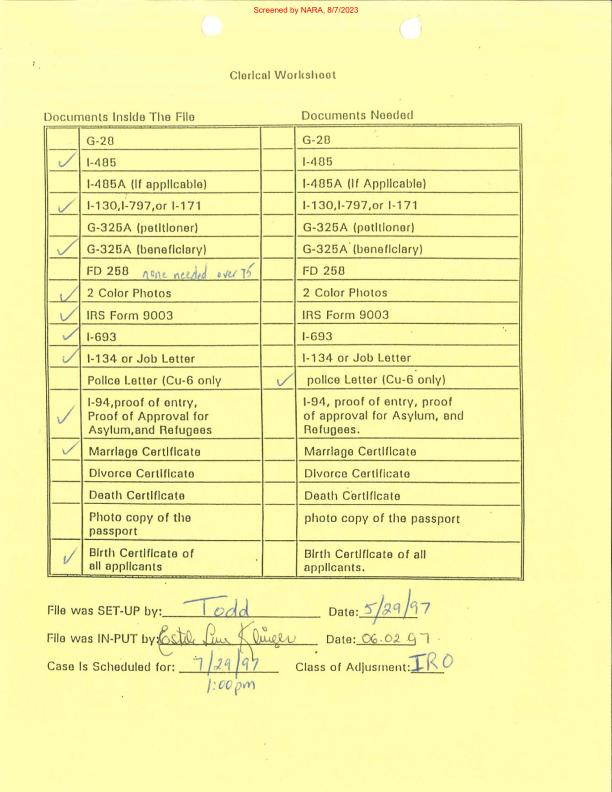 Screened by NARA, 8/7/2023
Clerical Worksheet
Documents Inside The File Documents Needed
G-28 G-28
✓ I-485 I-485
I-485A (if applicable) I-485A (If Applicable)
✓ I-130,I-797,or I-171 I-130,I-797,or I-171
G-325A (petitioner) G-325A (petitioner)
✓ G-325A (beneficiary) G-325A (beneficiary)
FD 258 none needed over 75 FD 258
✓ 2 Color Photos 2 Color Photos
✓ IRS Form 9003 IRS Form 9003
✓ I-693 I-693
✓ I-134 or Job Letter I-134 or Job Letter
Police Letter (Cu-6 only ✓ police Letter (Cu-6 only)
✓ I-94,proof of entry, I-94, proof of entry, proof
Proof of Approval for of approval for Asylum, and
Asylum,and Refugees Refugees.
✓ Marriage Certificate Marriage Certificate
Divorce Certificate Divorce Certificate
Death Certificate Death Certificate
Photo copy of the photo copy of the passport
passport
✓ Birth Certificate of Birth Certificate of all
all applicants applicants.
File was SET-UP by: Todd Date: 5/29/97
File was IN-PUT by: Date: 06.02.97
Case Is Scheduled for: 7/29/97 Class of Adjusment: IRO
1:00pm